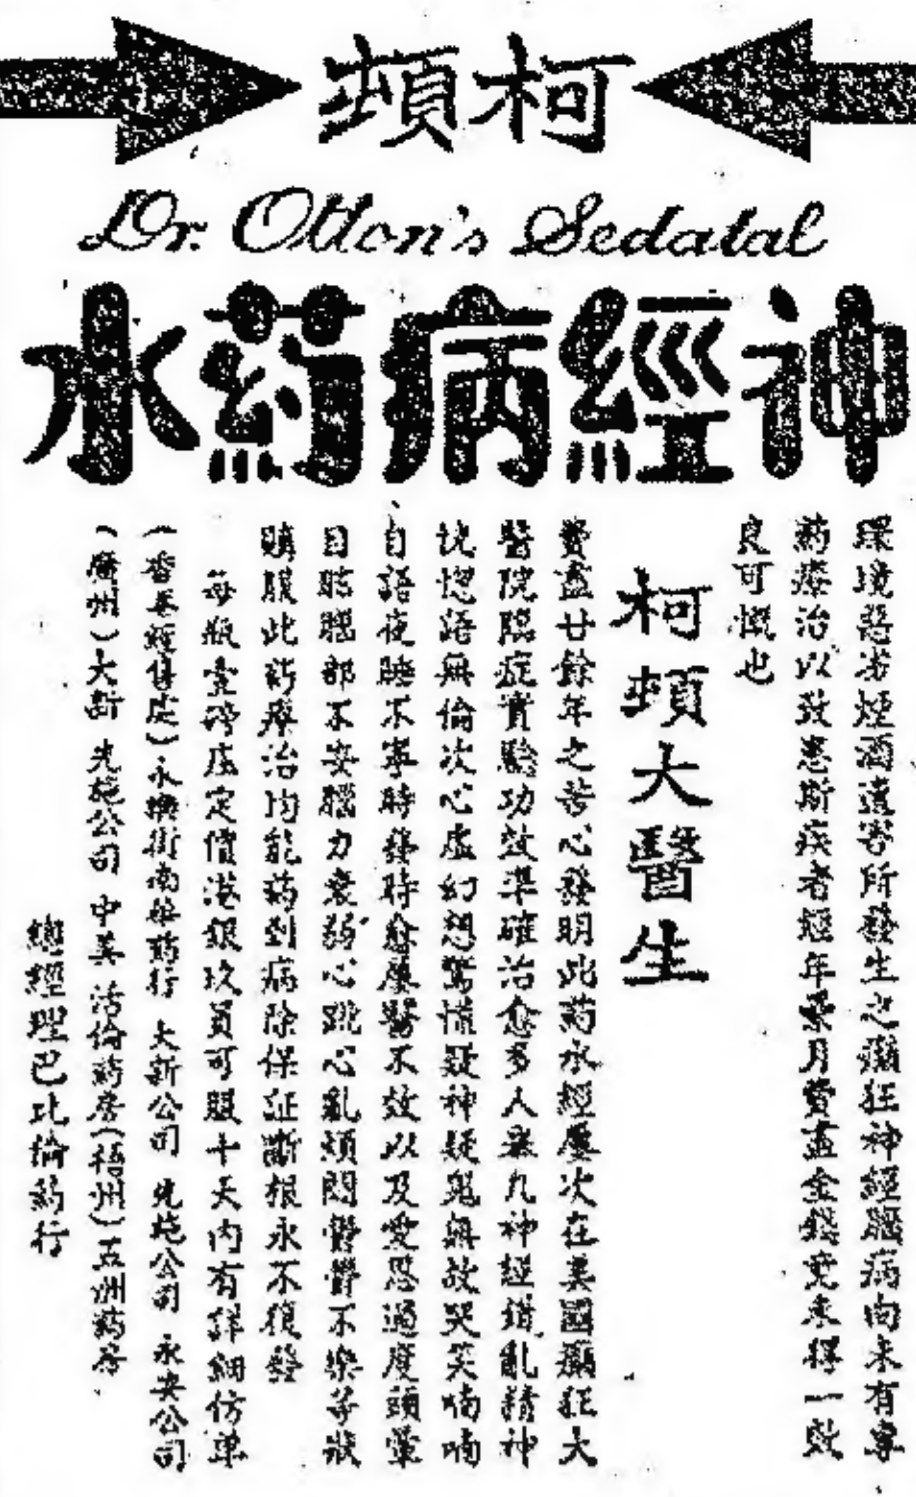 柯頓
Dr. Otton's Sedatal
神經病药水
環境惡劣煙酒遺害所發生之癲狂神經腦病向未有專
药療治以致患斯疾者經年累月費盡金錢竟未得一效
良可慨也
柯頓大醫生
費盡廿餘年之苦心發明此药水經屢次在美國癲狂大
醫院臨症實驗功效準確治愈多人凡神經錯亂精神
恍惚語無倫次心虛幻想驚慌疑神疑鬼無故哭笑喃喃
自語夜睡不寧時發時愈屢醫不效以及憂思過度頭暈
目眩腦部不安腦力衰弱心跳心亂煩悶鬱鬱不樂等狀
請服此药療治均能药到病除保証斷根永不復發
每瓶壹磅庄定價港銀玖員可服十天內有詳細仿單
(香港經售處)永樂街南華药行 大新公司 先施公司 永安公司
(廣州)大新 先施公司 中美 活倫药房(梧州)五洲药房
總經理巴比倫药行